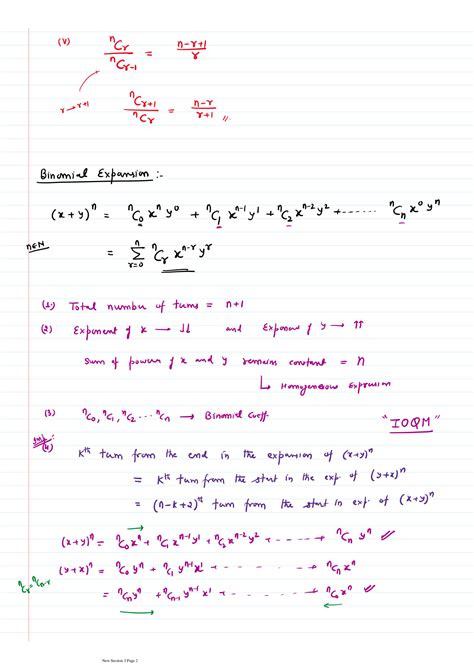 (V) ⁿCᵣ / ⁿCᵣ₋₁ = n-r+1 / r
r→r+1 ⁿCᵣ₊₁ / ⁿCᵣ = n-r / r+1 //
Binomial Expansion :-
(x+y)ⁿ = ⁿC₀ xⁿ y⁰ + ⁿC₁ xⁿ⁻¹ y¹ + ⁿC₂ xⁿ⁻² y² + ------ ⁿCₙ x⁰ yⁿ
n∈N
= Σ_{r=0}^{n} ⁿCᵣ xⁿ⁻ʳ yʳ
(1) Total number of terms = n+1
(2) Exponent of x → ↓↓ and Exponent of y → ↑↑
Sum of powers of x and y remains constant = n
↳ Homogeneous Expression
(3) ⁿC₀, ⁿC₁, ⁿC₂ ---- ⁿCₙ → Binomial Coeff.
"IOQM"
Imp:
(4) Kᵗʰ term from the end in the expansion of (x+y)ⁿ
= Kᵗʰ term from the start in the exp of (y+x)ⁿ
= (n-k+2)ᵗʰ term from the start in exp. of (x+y)ⁿ
(x+y)ⁿ = ⁿC₀xⁿ + ⁿC₁ xⁿ⁻¹y¹ + ⁿC₂xⁿ⁻²y² + ------ + ⁿCₙ yⁿ
(y+x)ⁿ = ⁿC₀yⁿ + ⁿC₁ yⁿ⁻¹x¹ + ------ + ⁿCₙ xⁿ
ⁿCᵣ=ⁿCₙ₋ᵣ
= ⁿCₙyⁿ + ⁿCₙ₋₁ yⁿ⁻¹x¹ + ------ + ⁿC₀xⁿ
New Section 3 Page 2